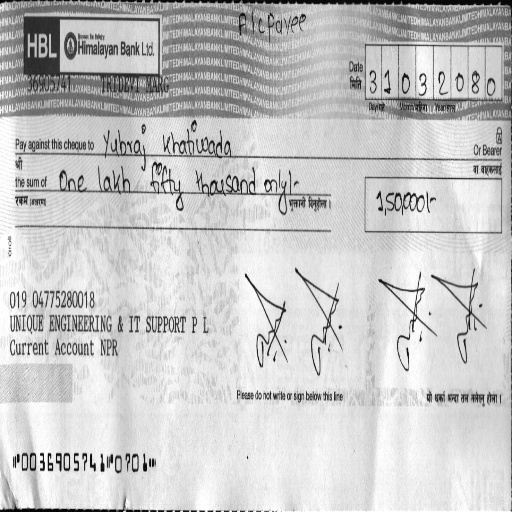 A/c Payee
HBL Himalayan Bank Ltd.
36905741 TRIDEVI MARG
Date मिति 31032080
Pay against this cheque to Yubraj Khatiwada Or Bearer
श्री वा वाहकलाई
the sum of One lakh fifty thousand only/- 1,50,000/-
रकम (अक्षरमा) भुक्तानी दिनुहोला ।
019 04775280018
UNIQUE ENGINEERING & IT SUPPORT P L
Current Account NPR
Please do not write or sign below this line
⑈0036905741⑈0701⑈